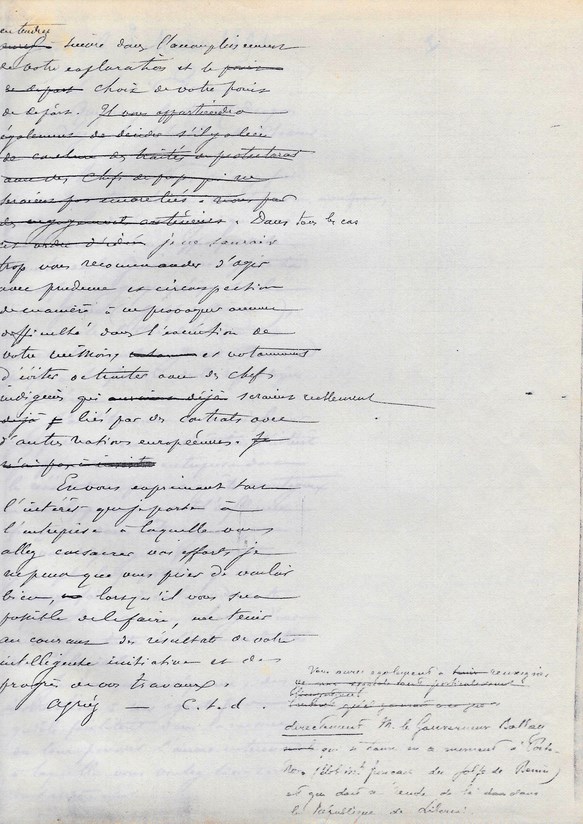 entendez
suivre dans l'accomplissement
de votre exploration et le
de départ choix de votre point
de départ. Il vous appartiendra
également de décider s'il y a lieu
de conclure des traités de protectorat
avec des chefs de pays qui ne
seraient pas encore liés à nous par
des engagements antérieurs. Dans tous les cas
cet ordre d'idées je ne saurais
trop vous recommander d'agir
avec prudence et circonspection
de manière à ne provoquer aucune
difficulté dans l'exécution de
votre mission, et notamment
d'éviter de traiter avec des chefs
indigènes qui auraient déjà seraient réellement
déjà liés par des contrats avec
d'autres nations européennes. Je
n'ai pas à insister
En vous exprimant tout
l'intérêt que je porte à
l'entreprise à laquelle vous
allez consacrer vos efforts je
ne peux que vous prier de vouloir
bien, lorsqu'il vous sera
possible de le faire, me tenir
au courant des résultats de votre
intelligente initiative et des
progrès de vos travaux.
Agréez — C. t. d.
Vous aurez également à tenir renseigné
directement M. le Gouverneur Ballay
qui se trouve en ce moment à Porto
Novo (Etabts français du golfe de Bénin)
et que doit à de là dans
la République de Libéria